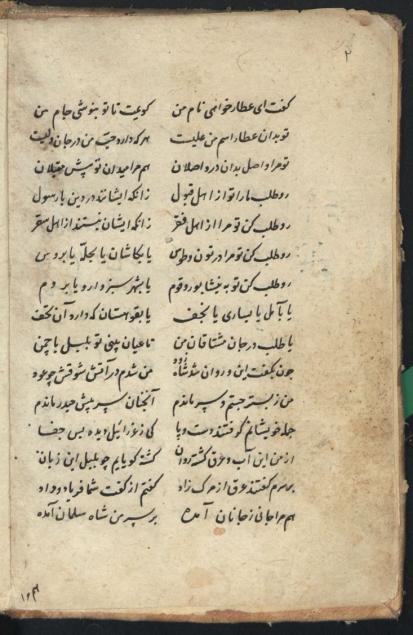 ۲
گفت ای عطار خواهی نام من کویمت تا تو بنوشی جام من
تو بدان عطار اسم من علیست هر که دارد حب من در جان ولیست
تو مرا واصل بدان در واصلان هم مرا میدان تو پیش مقبلان
رو طلب ما را تو از اهل قبول زانکه ایشانند در دین با رسول
رو طلب کن تو مرا از اهل فقر زانکه ایشان نیستند از اهل سقر
رو طلب کن تو مرا در تون و طوس یا بکاشان یا بحله یا بروس
رو طلب کن تو به نیشابور و قم یا بشهر سبزوار و یا بروم
یا بآمل یا بساری یا نجف یا بقوهستان که دارد آن تحف
یا طلب در جان مشتاقان من تا عیان بینی تو بلبل یا چمن
چون بگفت این و روان شد شاه من شدم در آتش شوقش چو
من ز بستر جستم و سر ماندم آنچنان سر پیش حیدر ماندم
جمله خویشانم گرفتند دست و پا کی ز عزرائیل دیده بس جفا
از من این آب و عرق گشته روان گشته گویایم چو بلبل این زبان
بر سرم گفتند عرق از مرک زاد گفتم از گفت شما فریاد و داد
هم مرا جانی ز جانان آمده بر سر من شاه سلمان آمده